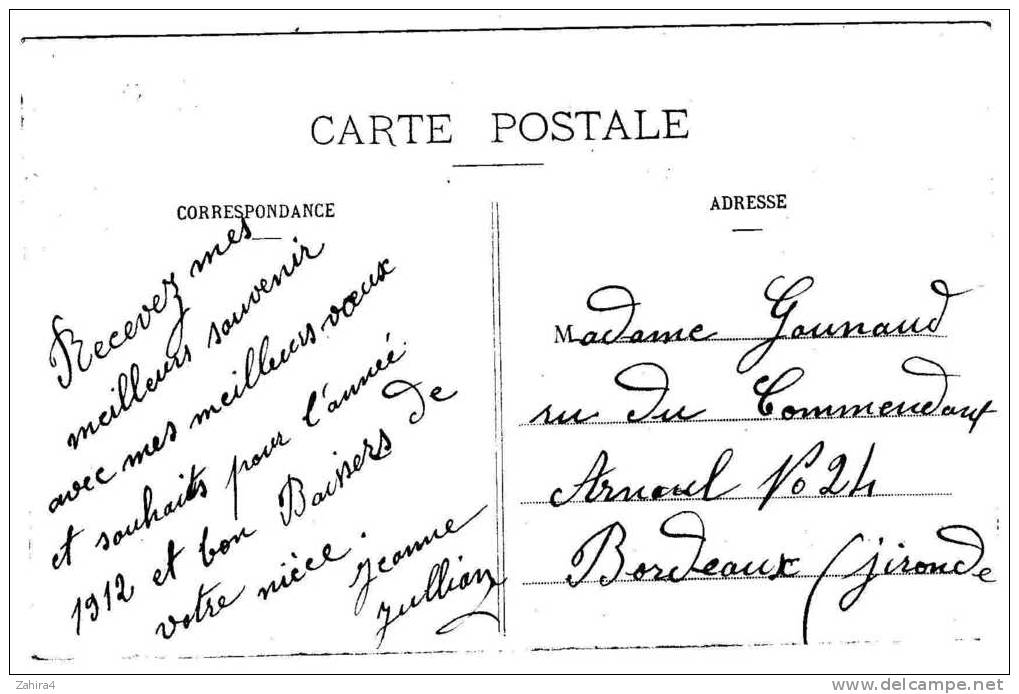 CARTE POSTALE
CORRESPONDANCE
Recevez mes
meilleurs souvenir
avec mes meilleurs vœux
et souhaits pour l'année
1912 et bon Baisers de
votre nièce.
Jeanne
Jullian
ADRESSE
Madame Gounaud
ru du Commendant
Arnoul No 24
Bordeaux (Jironde
Zahira4
http://www.delcampe.net